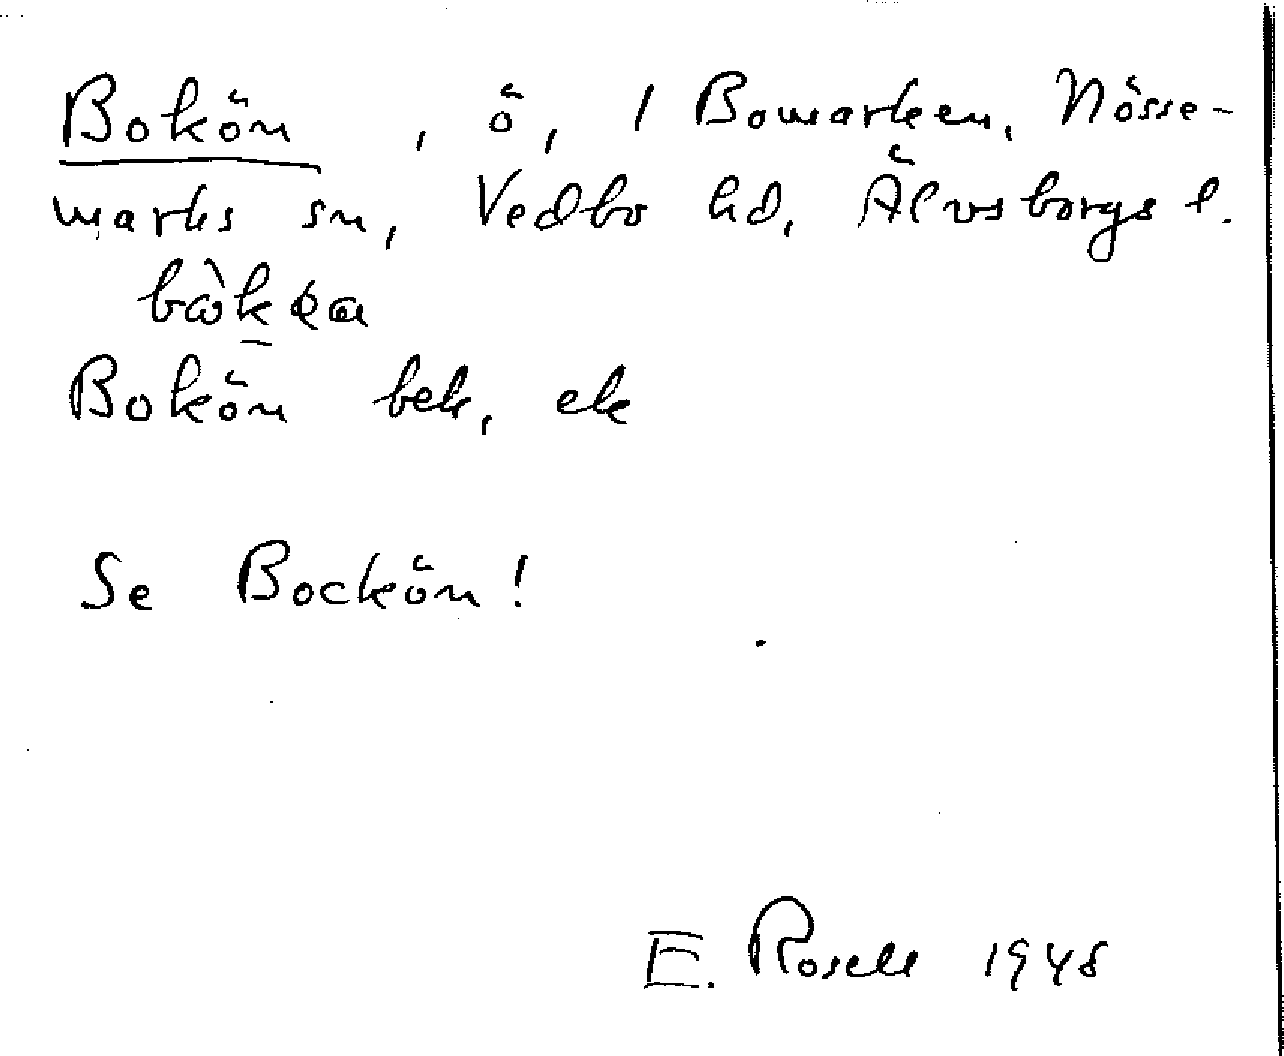 Bokön, ö, / Bomarken, Nösse-
marks sn, Vedbo hd, Älvsborgs l.
Bokön bek, ek
Se Bockön!
E. Rosell 1948